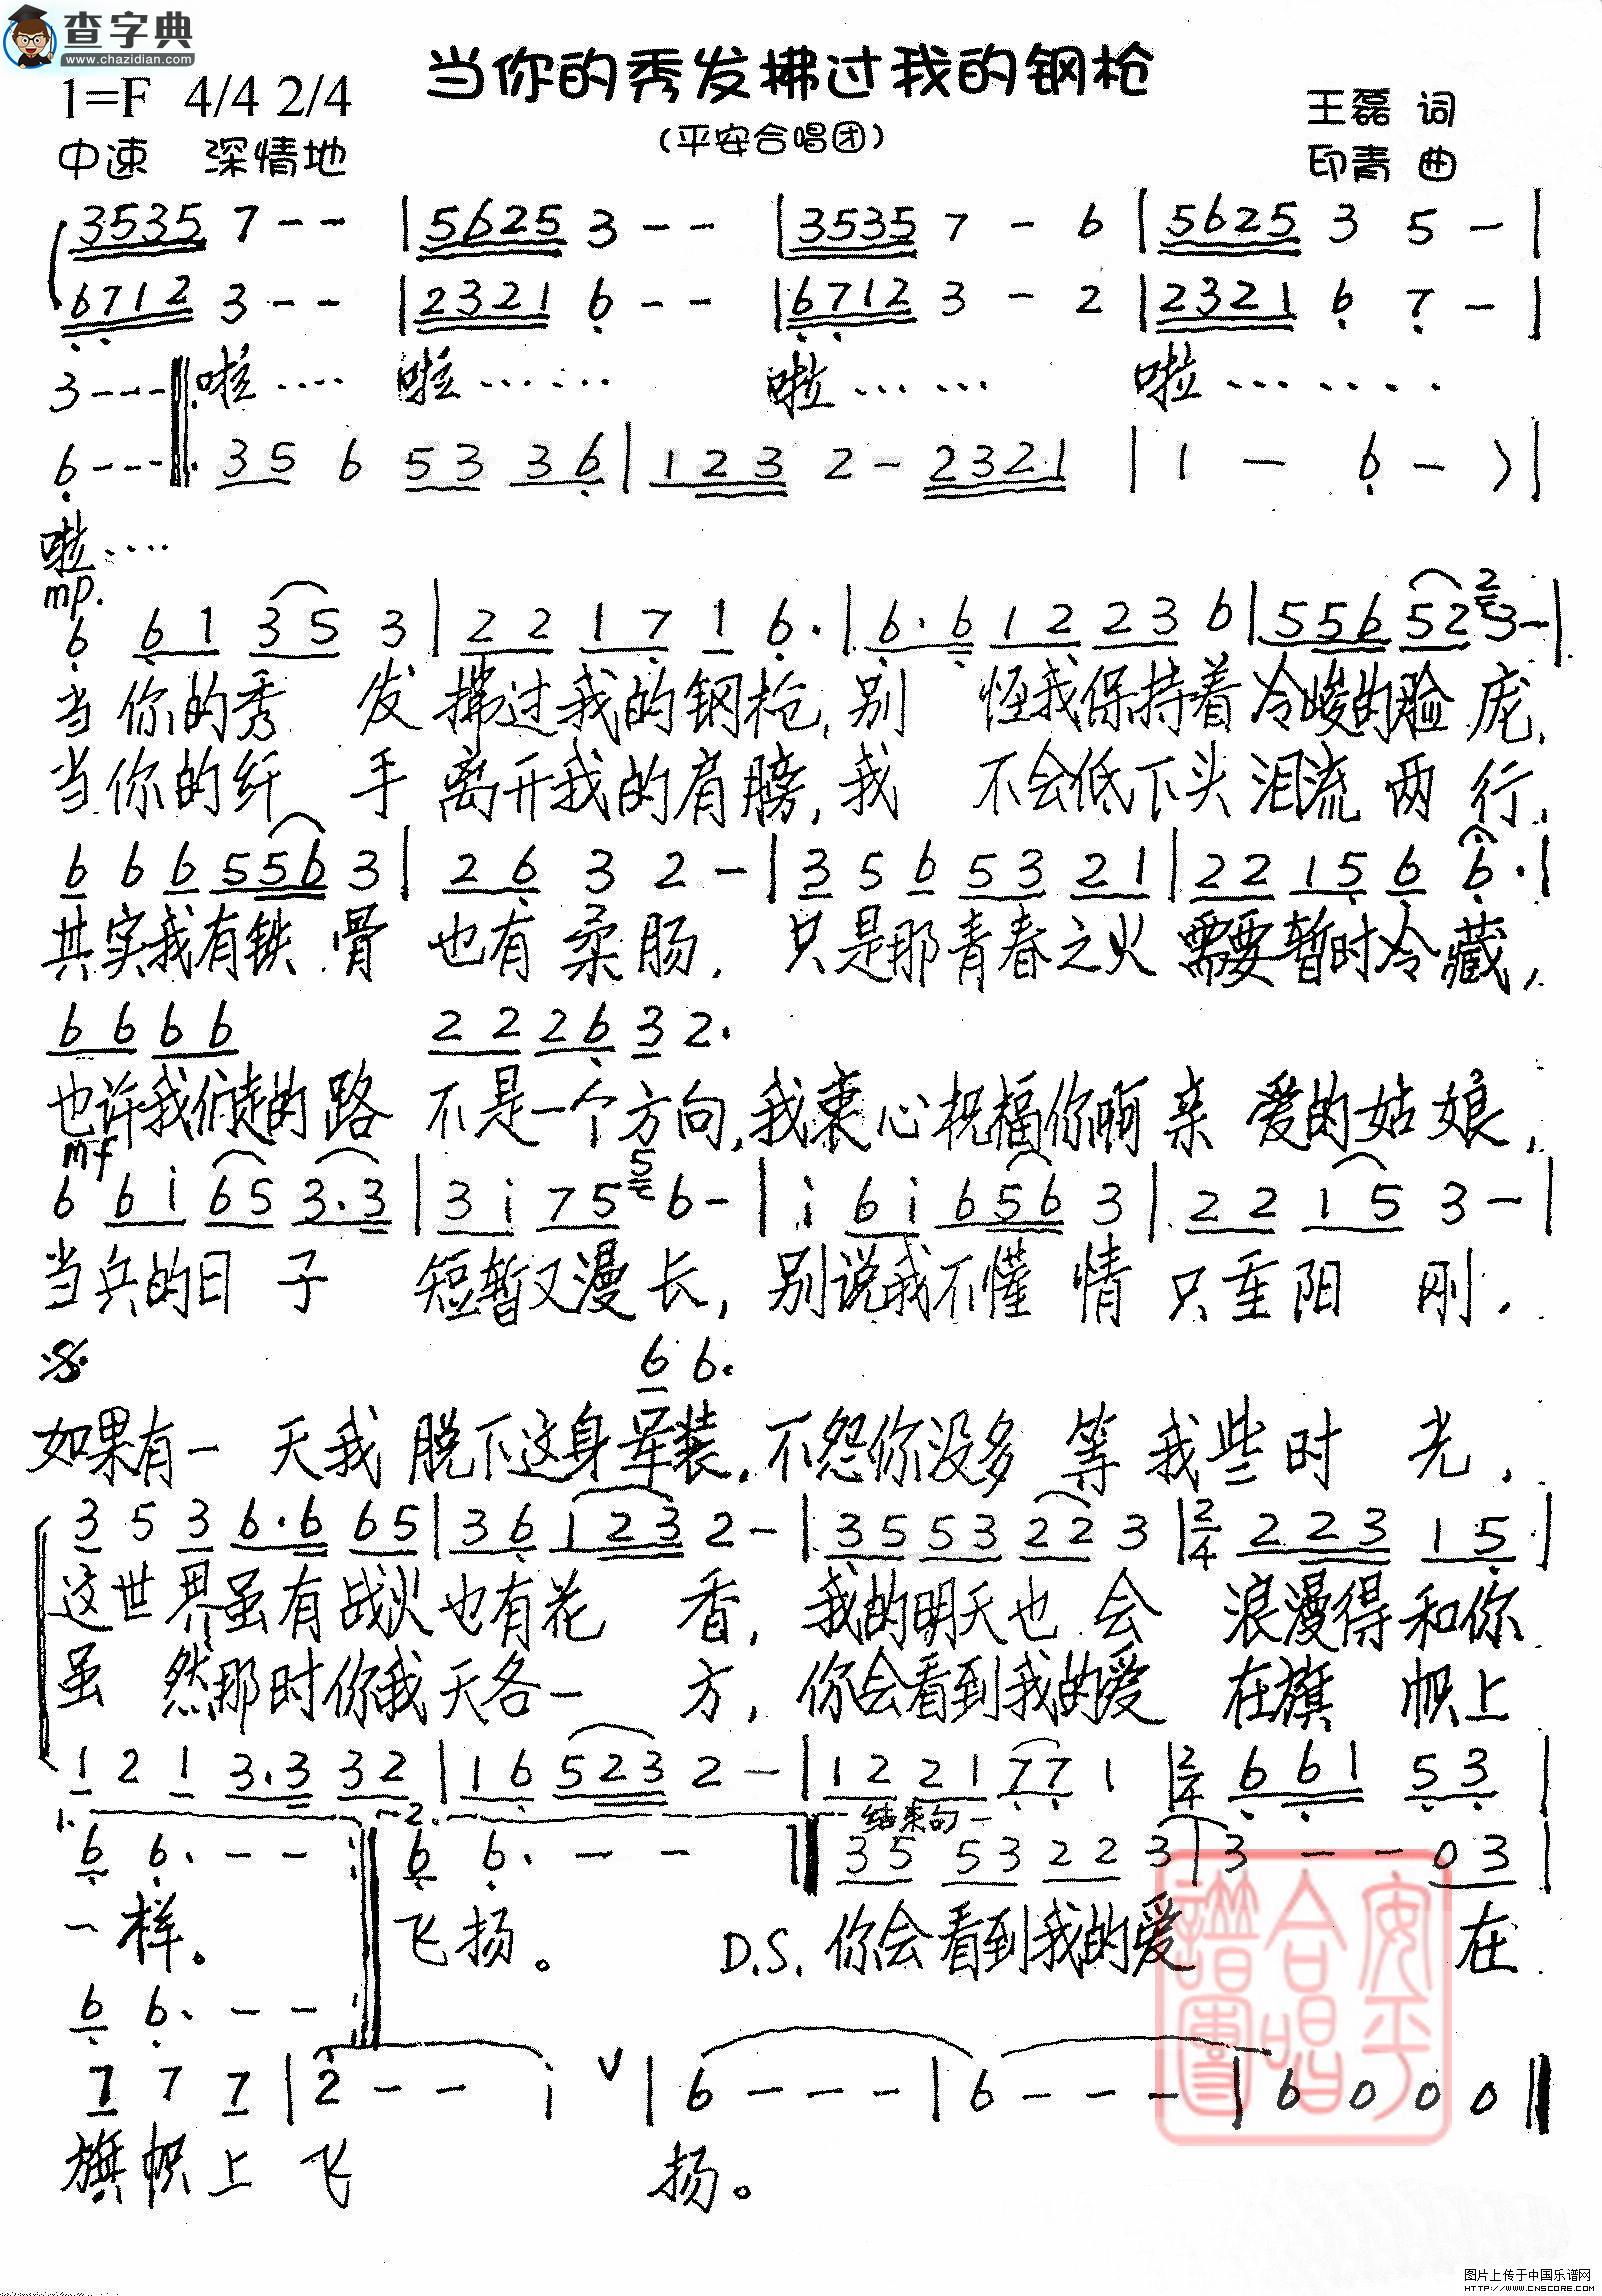 查字典
www.chazidian.com
当你的秀发拂过我的钢枪
1=F 4/4 2/4
(平安合唱团)
王磊 词
中速 深情地
印青 曲
3535 7 - - | 5625 3 - - | 3535 7 - 6 | 5625 3 5 - |
6712 3 - - | 2321 6 - - | 6712 3 - 2 | 2321 6 7 - |
3 - - - 啦···· 啦······ 啦······ 啦·······
6 - - - 35 6 53 36 | 123 2 - 2321 | 1 - 6 - 〉|
啦····
mp.
6 61 35 3 | 22 17 1 6· | 6·6 12 23 6 | 556 52 2 3 - |
当你的秀 发拂过我的钢枪,别 怪我保持着冷峻的脸庞,
当你的纤 手离开我的肩膀,我 不会低下头泪流两行,
6 6 6 556 3 | 26 3 2 - | 3 5 6 53 21 | 22 15 6 6· |
其实我有铁骨也有柔肠,只是那青春之火需要暂时冷藏,
66 66 22 26 3 2·
也许我们走的路不是一个方向,我衷心祝福你啊亲爱的姑娘,
mf
6 6i 65 3·3 | 3i 75 5 6 - | i 6i 656 3 | 22 15 3 - |
当兵的日子 短暂又漫长,别说我不懂情只重阳刚.
6 6·
如果有一天我脱下这身军装,不怨你没多等我些时光,
3 5 3 6·6 65 | 36 123 2 - | 35 53 22 3 | 2/4 223 15 |
这世界虽有战火也有花香,我的明天也会 浪漫得和你
虽然那时你我天各一方,你会看到我的爱 在旗帜上
1 2 1 3·3 32 | 16 523 2 - | 12 21 77 1 | 2/4 661 53 |
1. 2. 结束句
6 6· - - 6 6· - - 35 53 22 3 | 3 - - 03 |
一样。 飞扬。 D.S. 你会看到我的爱 在
6 6· - -
7 7 7 | 2 - - i V | 6 - - - | 6 - - - | 6 0 0 0
旗帜上飞 扬。
安平合唱谱图
图片上传于中国乐谱网
HTTP://WWW.CNSCORE.COM